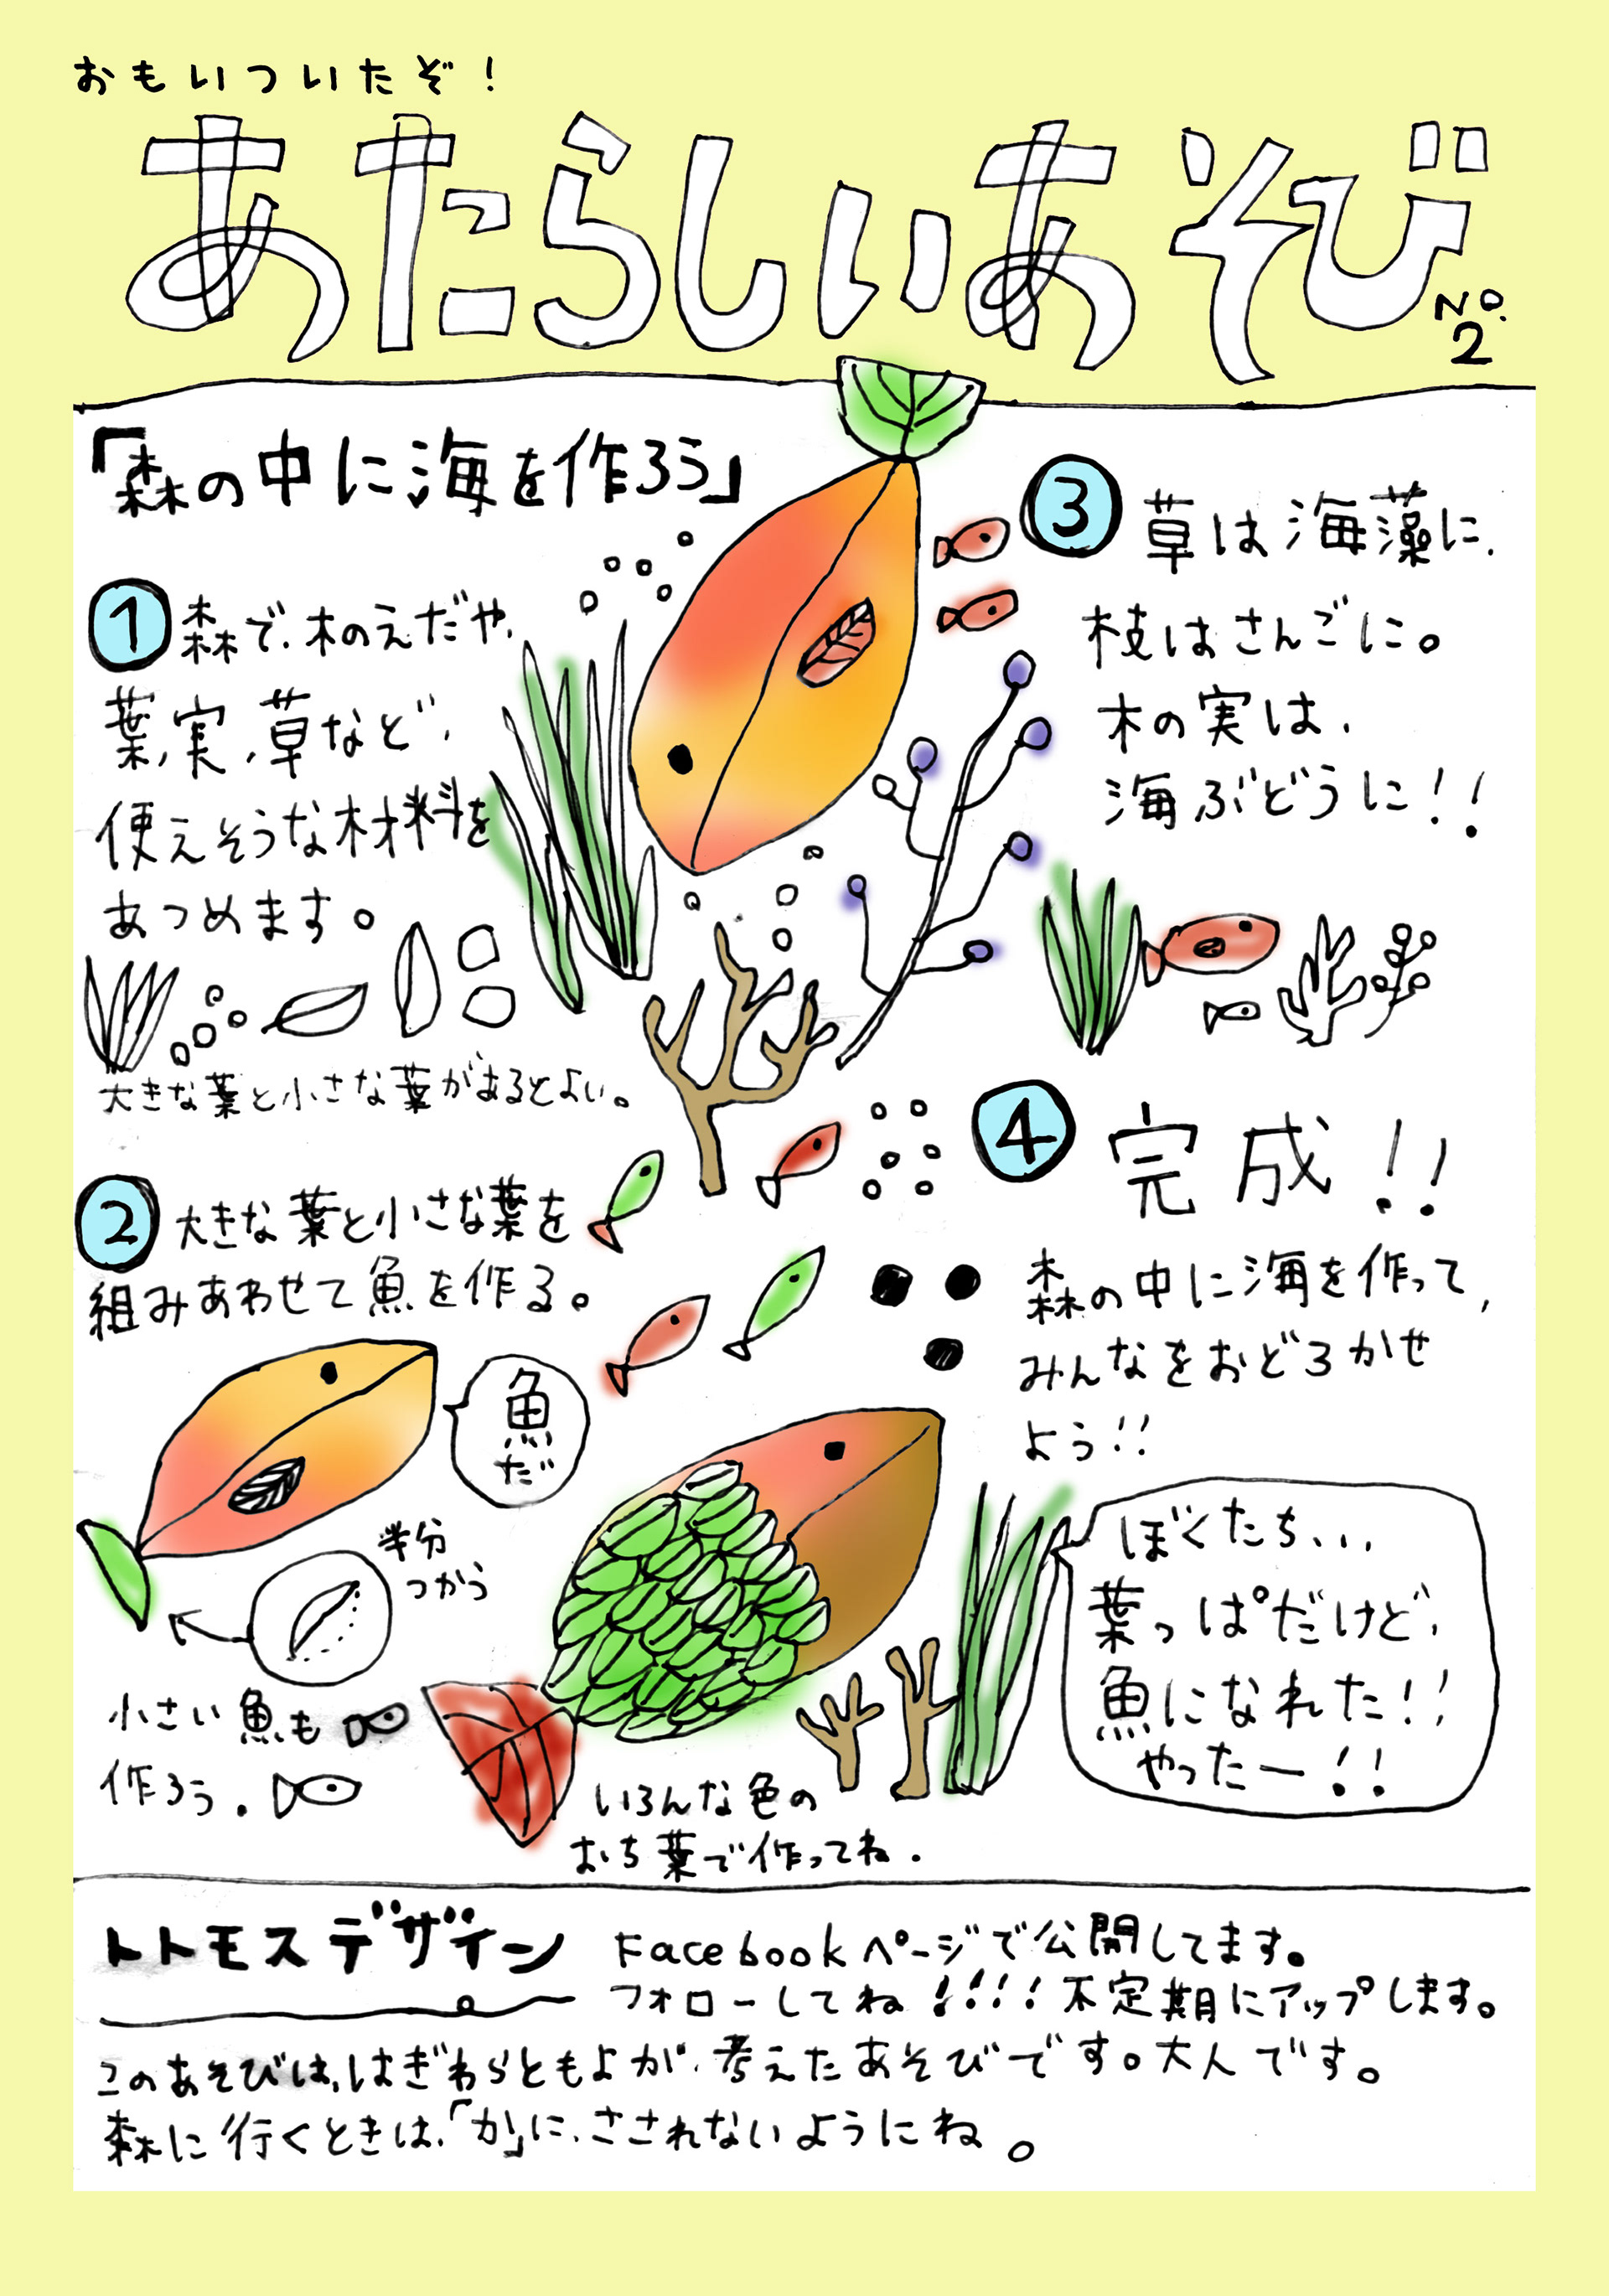 おもいついたぞ!
あたらしいあそび
No.
2
「森の中に海を作ろう」
1 森で、木のえだや、
葉、実、草など、
使えそうな材料を
あつめます。
大きな葉と小さな葉があるとよい。
2 大きな葉と小さな葉を
組みあわせて魚を作る。
魚
だ
半分
つかう
小さい魚も
作ろう.
いろんな色の
おち葉で作ってね.
3 草は海藻に、
枝はさんごに。
木の実は、
海ぶどうに!!
4 完成!!
森の中に海を作って,
みんなをおどろかせ
よう!!
ぼくたち、、、
葉っぱだけど、
魚になれた!!
やったー!!
トトモスデザイン
Facebookページで公開してます。
フォローしてね!!!!不定期にアップします。
このあそびは、はぎわらともよが、考えたあそびです。大人です。
森に行くときは、「か」に、さされないようにね。